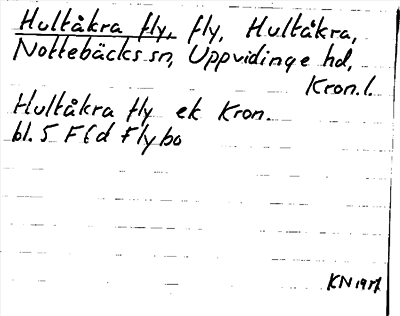 Hultåkra fly, fly, Hultåkra,
Nottebäcks sn, Uppvidinge hd,
Kron. l.
Hultåkra fly ek Kron.
bl. 5 F6d Flybo
KN